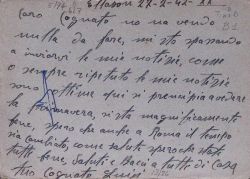 Ellasona 27-2-42 XX
Caro Cognato no na vendo
nulla da fare, mi sto spassando
a inviarvi le mie notizie, come
o sempre ripetuto le mie notizie
sono ottime qui si principia a vedere
la primavera, si sta magnificamente
bene, spero che anche a Roma il tempo
sia cambiato, come salute spero che state
tutti bene, saluti e Bacci a tutti di Casa
tuo Cognato